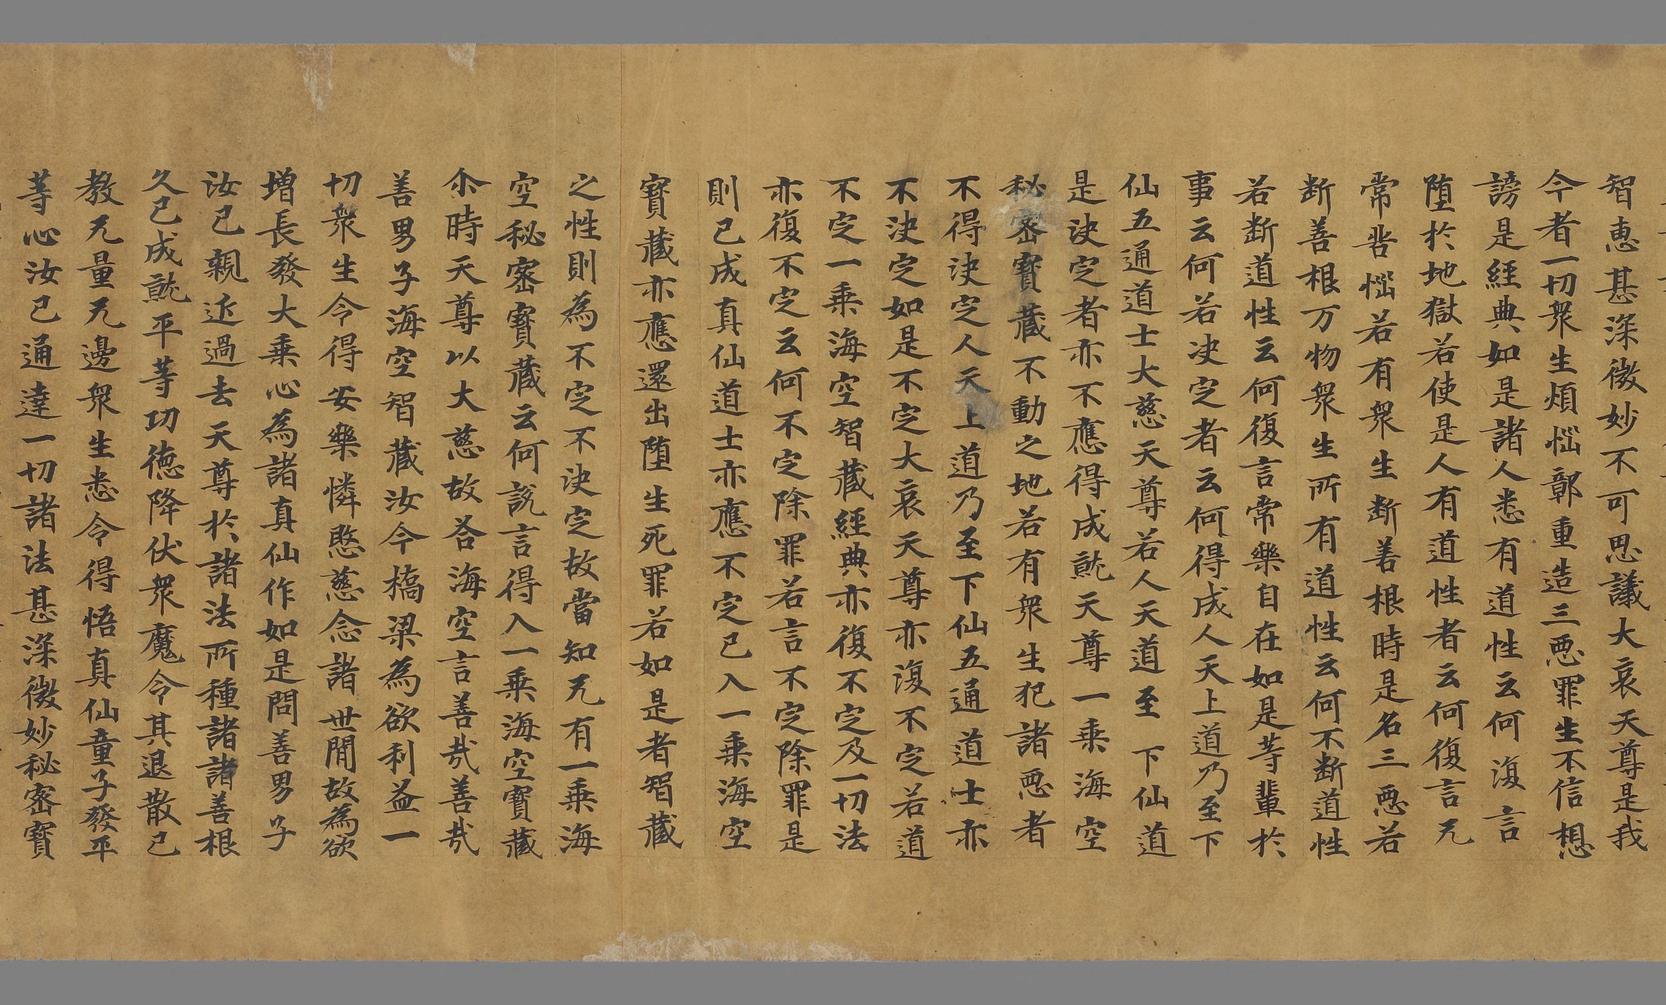 智恵甚深微妙不可思議大哀天尊是我
今者一切衆生煩惱鄣重造三惡罪生不信想
謗是經典如是諸人悉有道性云何復言
堕於地獄若使是人有道性者云何復言无
常呰惱若有衆生断善根時是名三惡若
断善根万物衆生所有道性云何不断道性
若断道性云何復言常樂自在如是等輩於
事云何若决定者云何得成人天上道乃至下
仙五通道士大慈天尊若人天道至下仙道
是决定者亦不應得成就天尊一乘海空
秘密寳藏不動之地若有衆生犯諸惡者
不得决定人天上道乃至下仙五通道士亦
不决定如是不定大哀天尊亦復不定若道
不定一乘海空智藏經典亦復不定及一切法
亦復不定云何不定除罪若言不定除罪是
則已成真仙道士亦應不定已入一乘海空
寳藏亦應還出堕生死罪若如是者智藏
之性則為不定不决定故當知无有一乘海
空秘密寳藏云何說言得入一乘海空寳藏
尒時天尊以大慈故荅海空言善哉善哉
善男子海空智藏汝今橋梁為欲利益一
切衆生令得安樂憐愍慈念諸世間故為欲
增長發大乘心為諸真仙作如是問善男子
汝已親近過去天尊於諸法所種諸諸善根
久已成就平等功德降伏衆魔令其退散已
教无量无邊衆生悉令得悟真仙童子發平
等心汝已通達一切諸法甚深微妙秘密寳